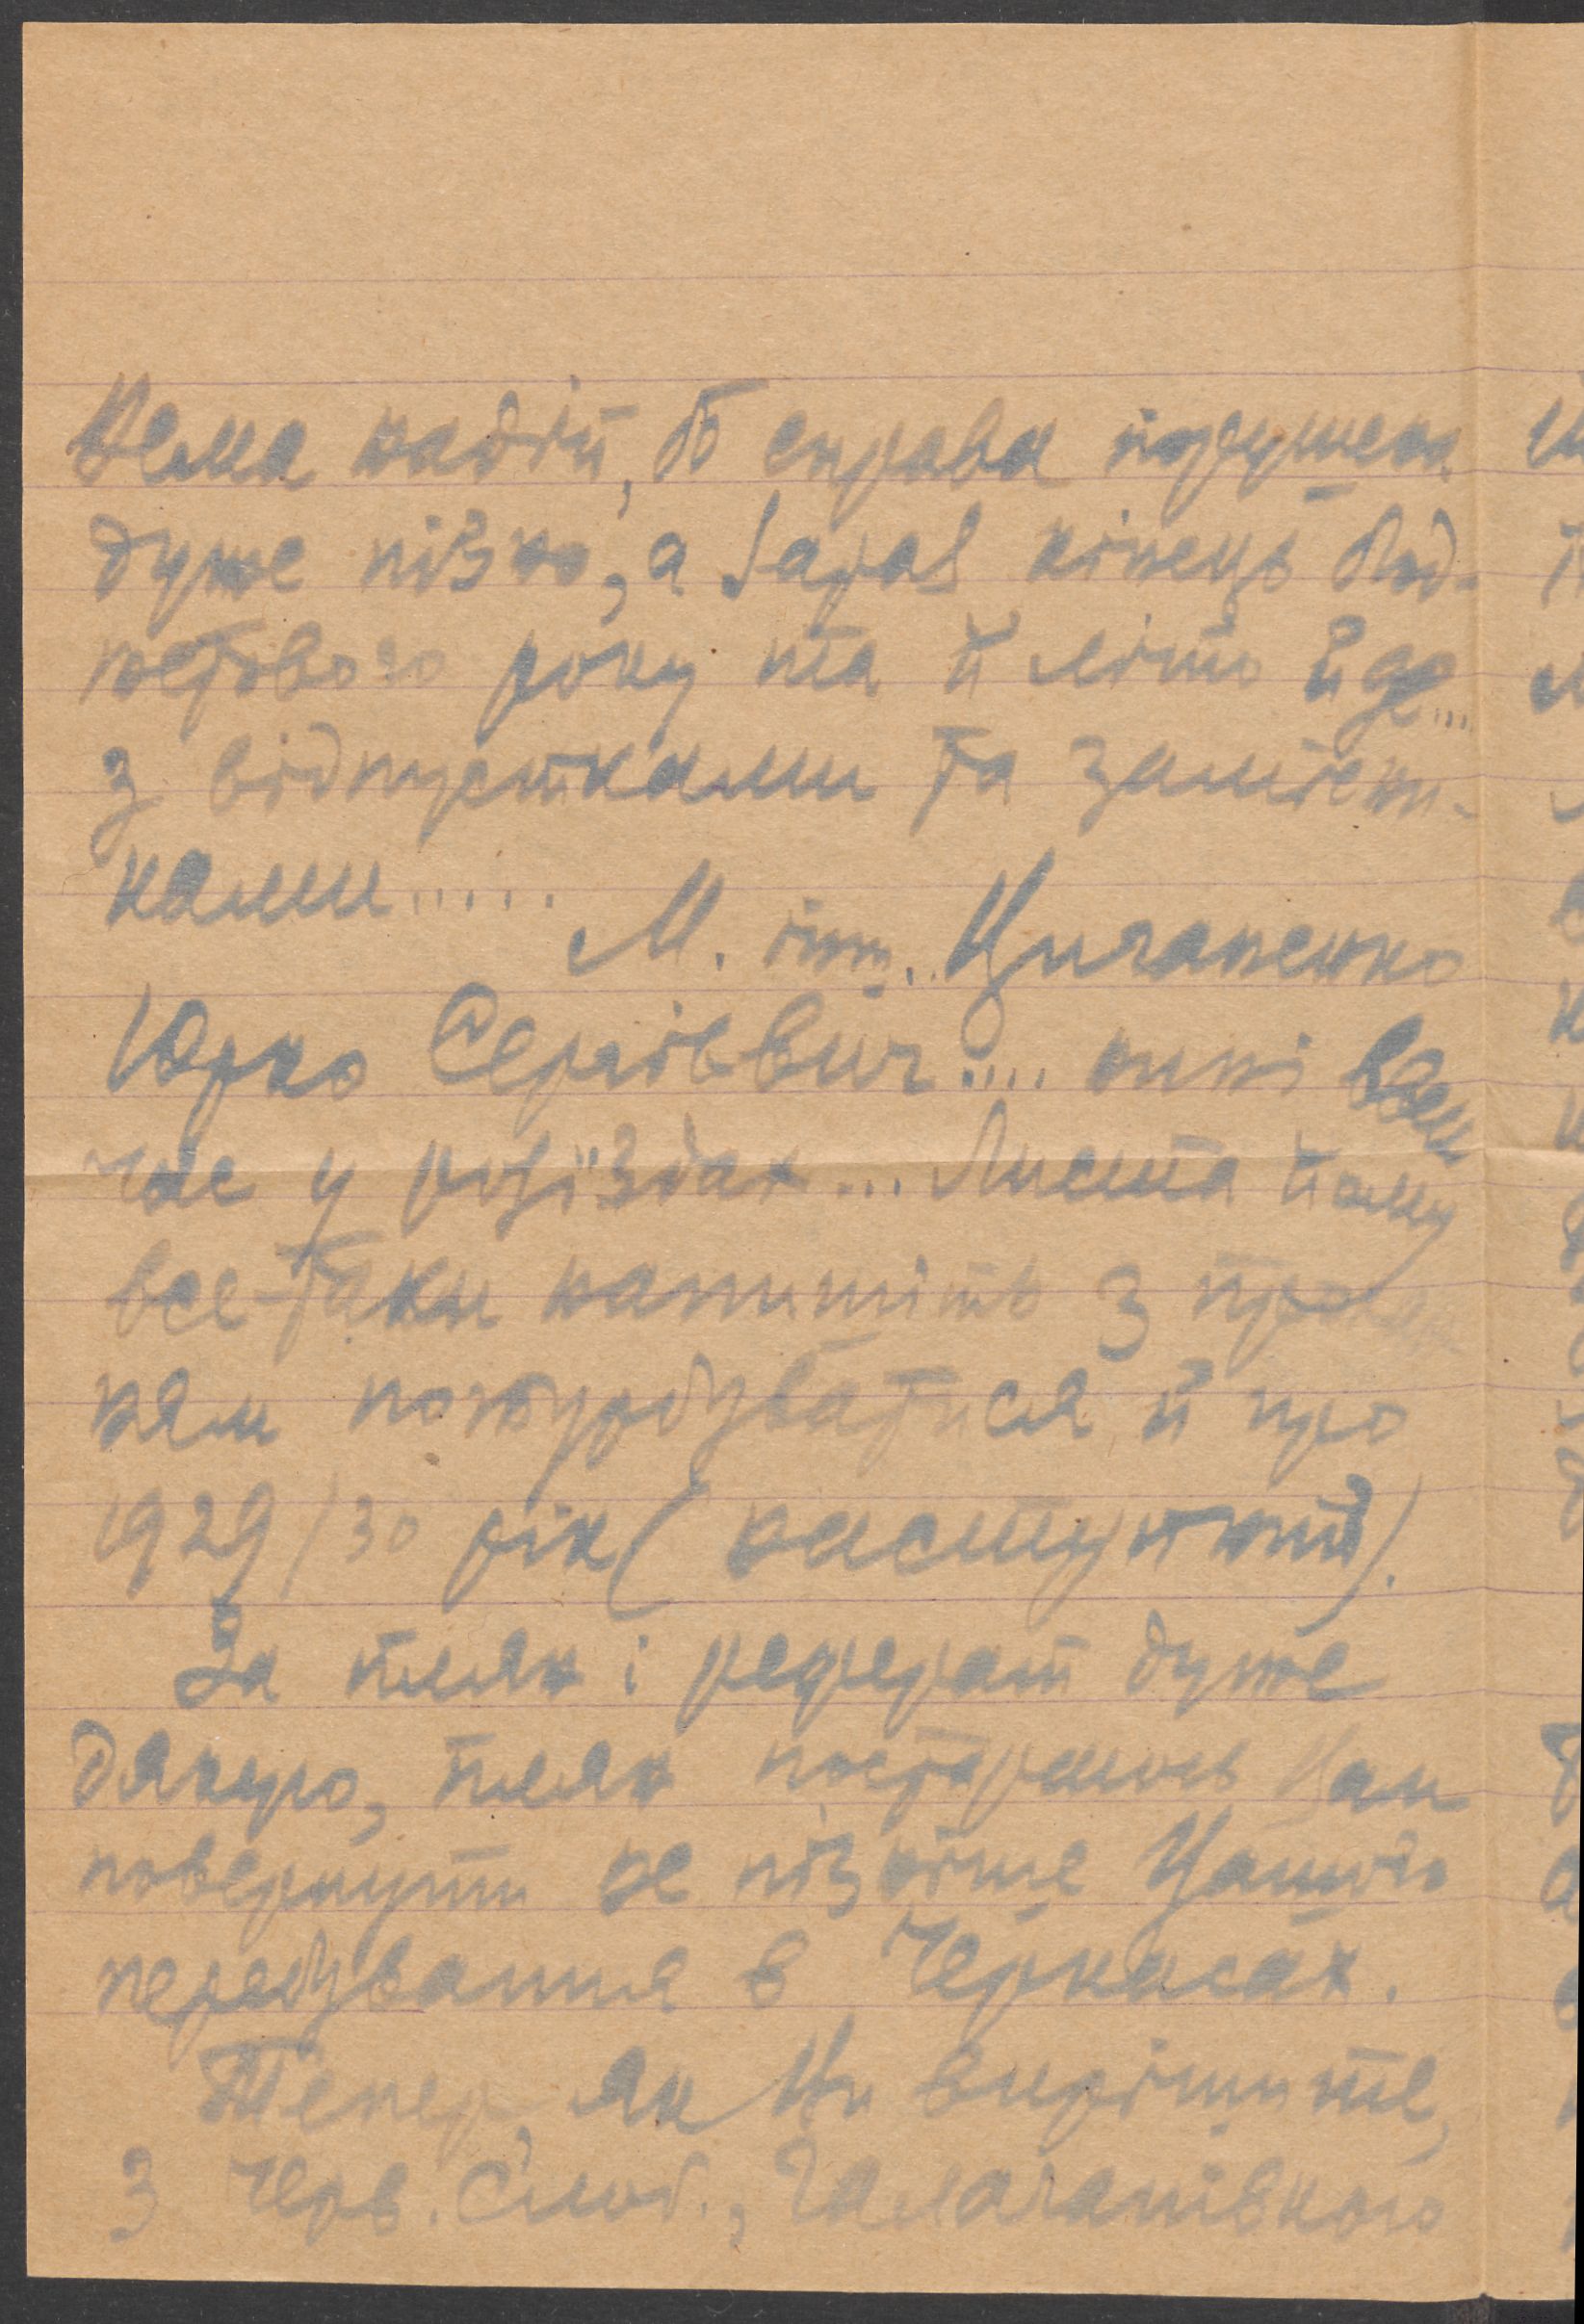 Нема надій, бо справа порушена
дуже пізно, а зараз кінець бюд-
жетового року та й літо йде...
з відпустками та заміст-
ками.....
М. інш. Циганенко
Юрко Сергієвич.... нині ввесь
час у розʼїздах... Листа йому
все-таки напишіть з прохан-
ням потурбуватися й про
1929/30 рік (наступний).
За плян і реферат дуже
дякую, плян постараюсь Вам
повернути не пізніше Вашого
перебування в Черкасах.
Тепер, як Ви вирішите,
з Черв. Слоб., Галаганівкою